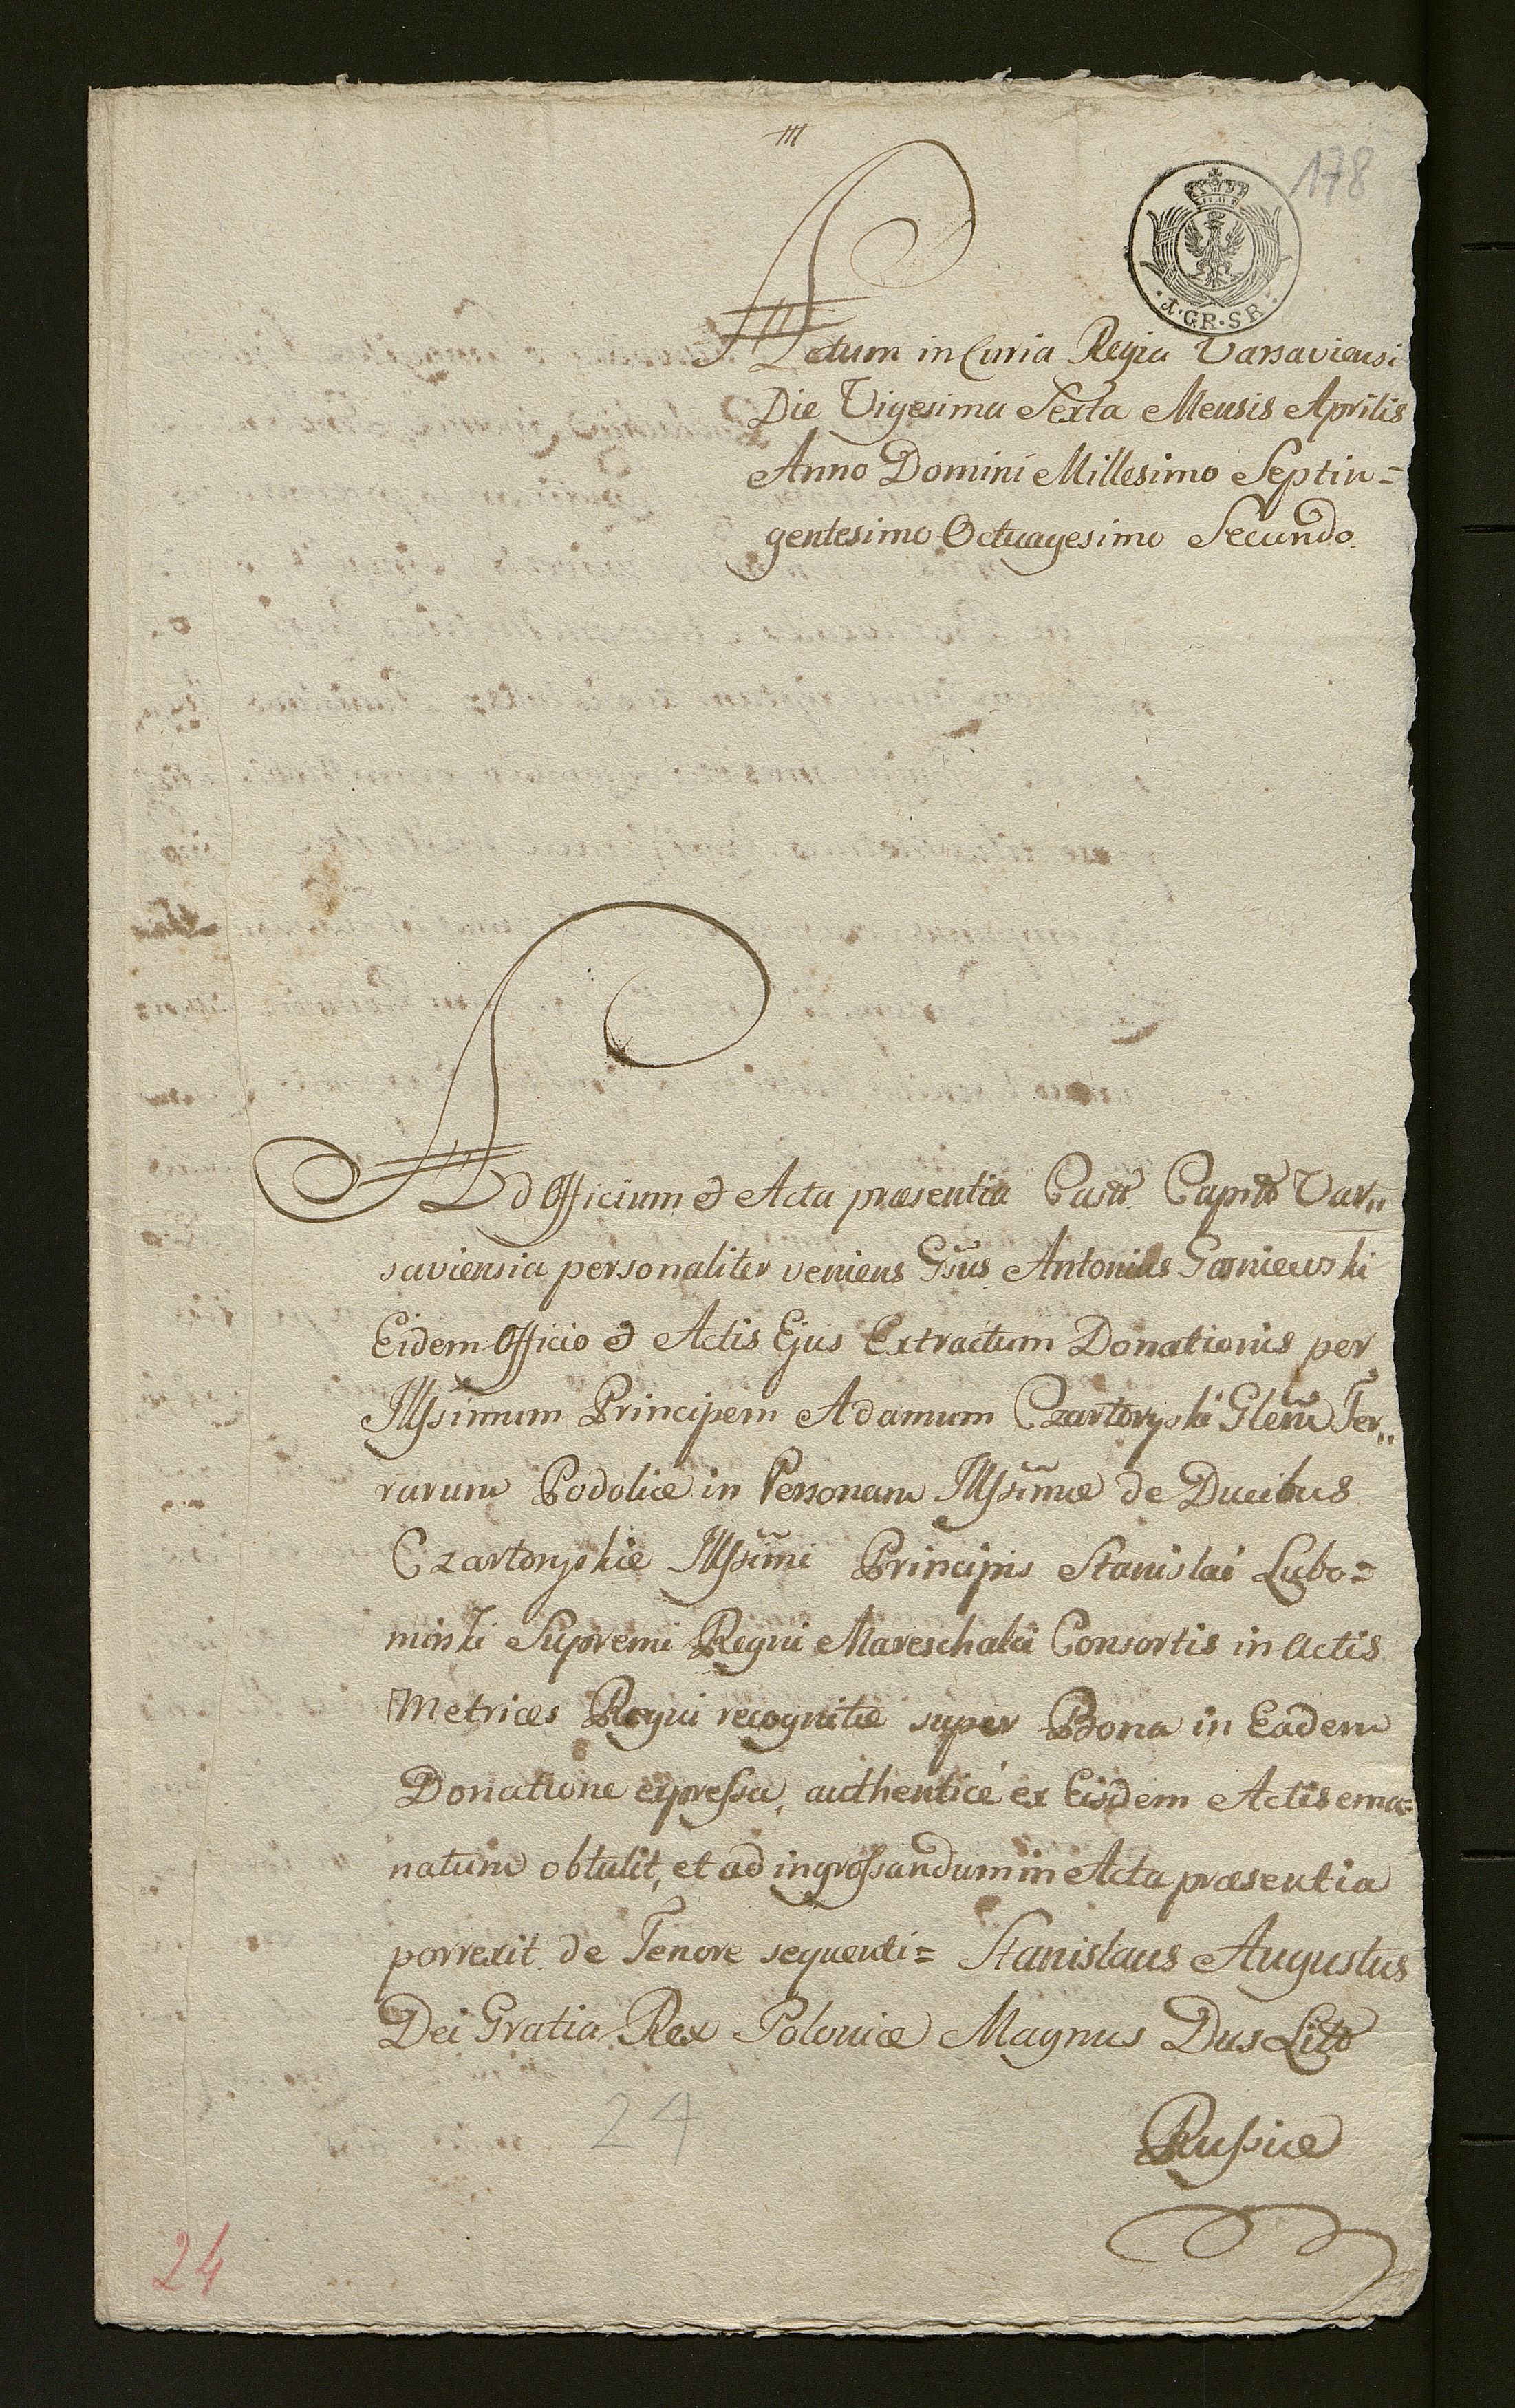 178
·x·GR·SR·
Actum in Curia Regia Varsaviensi
Die Vigesima Sexta Mensis Aprilis
Anno Domini Millesimo Septin=
gentesimo Octuagesimo Secundo.
Ad Officium et Acta præsentia Castr. Capit. Var„
saviensia personaliter veniens Gsus Antonius
Eidem Officio et Actis Ejus Extractum Donationis per
Illssimum Principem Adamum Czartoryski Glem Ter„
rarum Podoliæ in Personam Illssimæ de Ducibus
Czartoryskie Illssimi Principis Stanislai Lubo=
mirski Supremi Regni Mareschalci Consortis in actis
Metrices Regni recognitæ super Bona in Eadem
Donatione expressa, authenticé ex Eisdem Actis ema=
natum obtulit, et ad ingrossandum in Acta præsentia
porrexit de Tenore sequenti= Stanislaus Augustus
Dei Gratia Rex Poloniæ Magnus Dus Litt
Russiæ
24
24